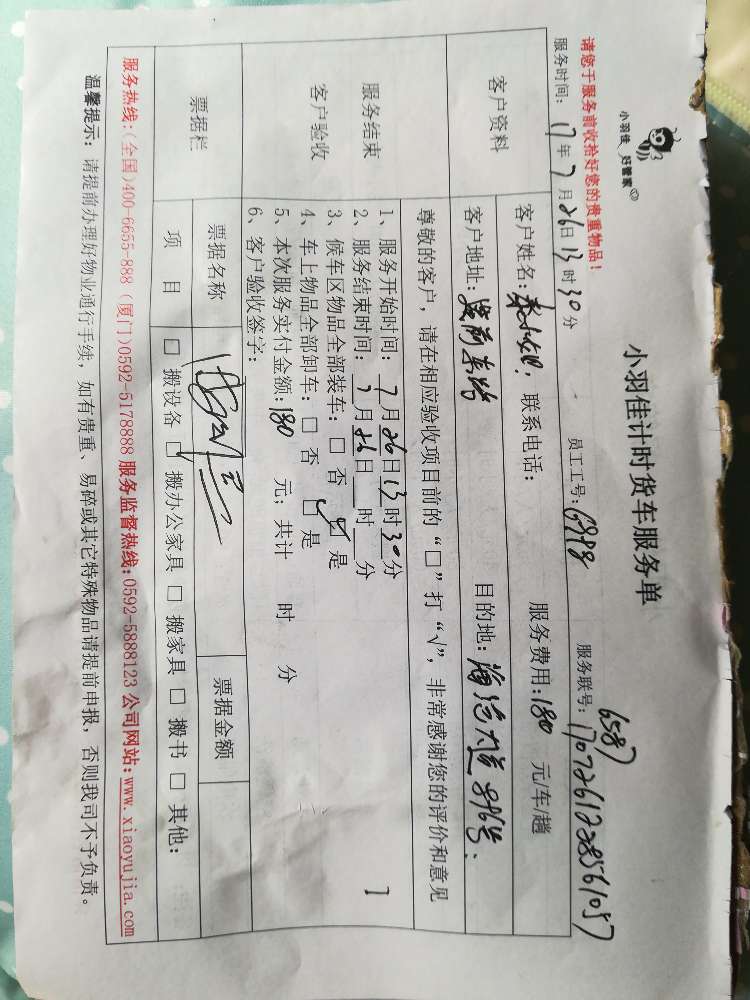 小羽佳 好管家
小羽佳计时货车服务单
请您于服务前收拾好您的贵重物品！
服务时间：17年7月26日13时30分 员工工号： 服务联号：
6587
客户资料
客户姓名： 联系电话： 服务费用：180 元/车/趟
客户地址： 目的地：
服务结束
客户验收
尊敬的客户，请在相应验收项目前的“□”打“√”，非常感谢您的评价和意见
1、服务开始时间：7月26日13时30分
2、服务结束时间：7月26日 时 分
3、候车区物品全部装车：□ 否 ☑ 是
4、车上物品全部卸车：□ 否 □ 是
5、本次服务实付金额：180 元；共计 时 分
6、客户验收签字：
票据栏
票据名称 票据金额
项 目 □ 搬设备 □ 搬办公家具 □ 搬家具 □ 搬书 □ 其他：
服务热线：(全国)400-6655-888 (厦门)0592-5178888 服务监督热线：0592-5888123 公司网站：www.xiaoyujia.com
温馨提示：请提前办理好物业通行手续，如有贵重、易碎或其它特殊物品请提前申报，否则我司不予负责。